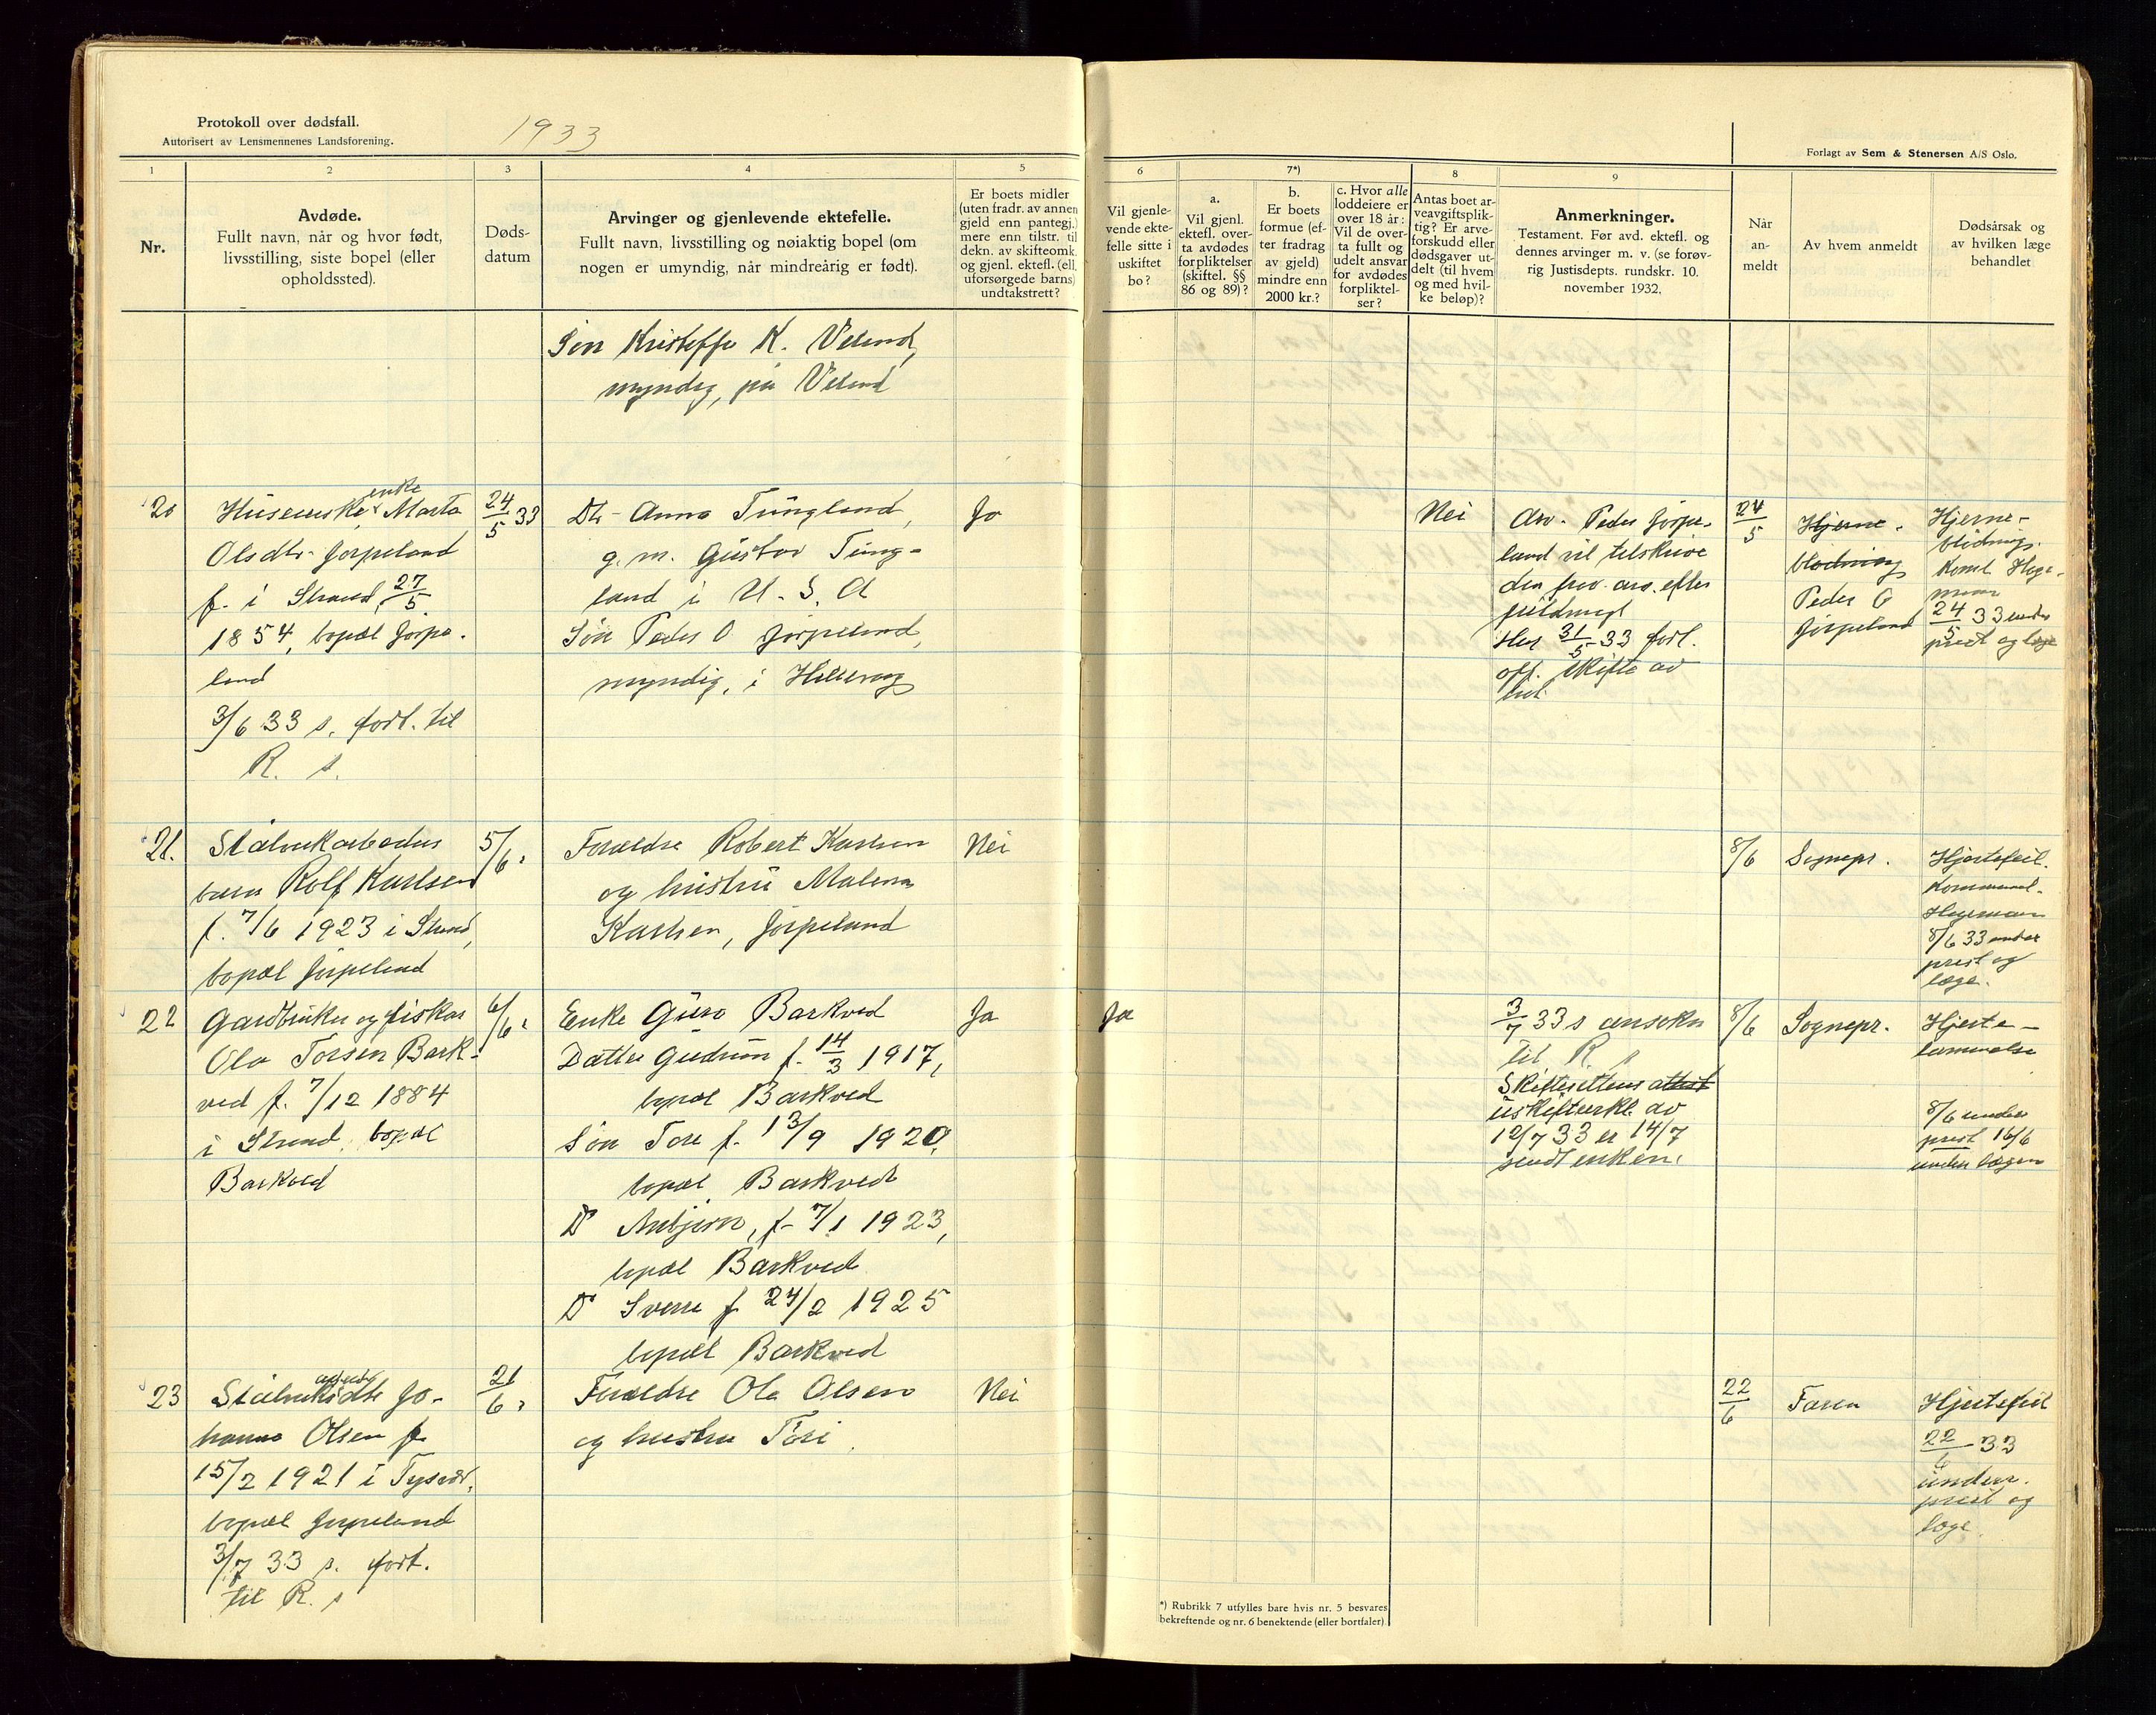 Protokoll over dødsfall.
Autorisert av Lensmennenes Landsforening.
1933
Forlagt av Sem & Stenersen A/S Oslo.
1
2
3
4
5
6
7*)
8
9
Nr.
Avdøde.
Fullt navn, når og hvor født,
livsstilling, siste bopel (eller
opholdssted).
Døds-
datum
Arvinger og gjenlevende ektefelle.
Fullt navn, livsstilling og nøiaktig bopel (om
nogen er umyndig, når mindreårig er født).
Er boets midler
(uten fradr. av annen
gjeld enn pantegj.)
mere enn tilstr. til
dekn. av skifteomk.
og gjenl. ektef. (ell.
uforsørgede barns)
undtakstrett?
Vil gjenle-
vende ekte-
felle sitte i
uskiftet
bo?
a.
Vil gjenl.
ektefl. over-
ta avdødes
forpliktelser
(skiftel. §§
86 og 89)?
b.
Er boets
formue (ef-
ter fradrag
av gjeld)
mindre enn
2000 kr.?
c. Hvor alle
loddeiere er
over 18 år:
Vil de over-
ta fullt og
udelt ansvar
for avdødes
forpliktel-
ser?
Antas boet ar-
veavgiftsplik-
tig? Er arve-
forskudd eller
dødsgaver ut-
delt (til hvem
og med hvil-
ke beløp)?
Anmerkninger.
Testament. Før avd. ektefl. og
dennes arvinger m. v. (se forøv-
rig Justisdepts. rundskr. 10.
november 1932.
Når
an-
meldt
Av hvem anmeldt
Dødsårsak og
av hvilken læge
behandlet
Søn Kristoffer K. Veland,
myndig, på Veland
20
enke
Marta
Olsdtr Jørpeland
f. i Strand, 27/5
1854, bopæl Jørpe-
land
3/6 33 s. fort. til
R. s.
24/5 33
Dtr Anna Tungland,
g. m. Gustav Tung-
land i U. S. A
Søn Peder O Jørpeland,
myndig, i Hillevåg
Ja
Nei
Arv. Peder Jørpe-
land vil tilskrive
den frav. arv. efter
fuldmagt
Her 31/5 33 forl.
off. skifte av
24/5
Hjerne-
blødning
Peder O
Jørpeland
Hjerne-
blødning.
Koml Hage-
man
24/5 33 under
prest og læge
21.
Stålverkarbeider
barn Rolf Karlsen
f. 7/6 1923 i Strand,
bopæl Jørpeland
5/6
Foreldre Robert Karlsen
og hustru Malena
Karlsen, Jørpeland
Nei
8/6
Sognepr.
Hjertefeil.
Kommunel.
Hageman
8/6 33 under
prest og
læge.
22
Gardbruker og fisker
Ola Torsen Bark-
ved f. 7/12 1884
i Strand, bopæl
Barkved
6/6
Enke Guro Barkved
Datter Gudrun f. 14/3 1917,
bopæl Barkved
Søn Tore f. 13/9 1920,
bopæl Barkved
D° Anbjørn, f. 7/1 1923,
bopæl Barkved
D° Sverre f 24/2 1925
bopæl Barkved
Ja
Ja
3/7 33 s ansøkn
til R. s
Skifterettens attest
uskifteerkl. av
12/7 33 er 14/7
sendt enken.
8/6
Sognepr.
Hjerte-
lammelse
8/6 under
prest 16/6
under lægen
23
Stålverks Jo-
hanna Olsen f.
15/2 1921 i Tysvær,
bopæl Jørpeland
3/7 33 s. fort.
til R. s
21/6
Foreldre Ola Olsen
og hustru Tori
Nei
22/6
Faren
Hjertefeil
22/6 33
under.
prest og
læge.
*) Rubrikk 7 utfylles bare hvis nr. 5 besvares
bekreftende og nr. 6 benektende (eller bortfaler)